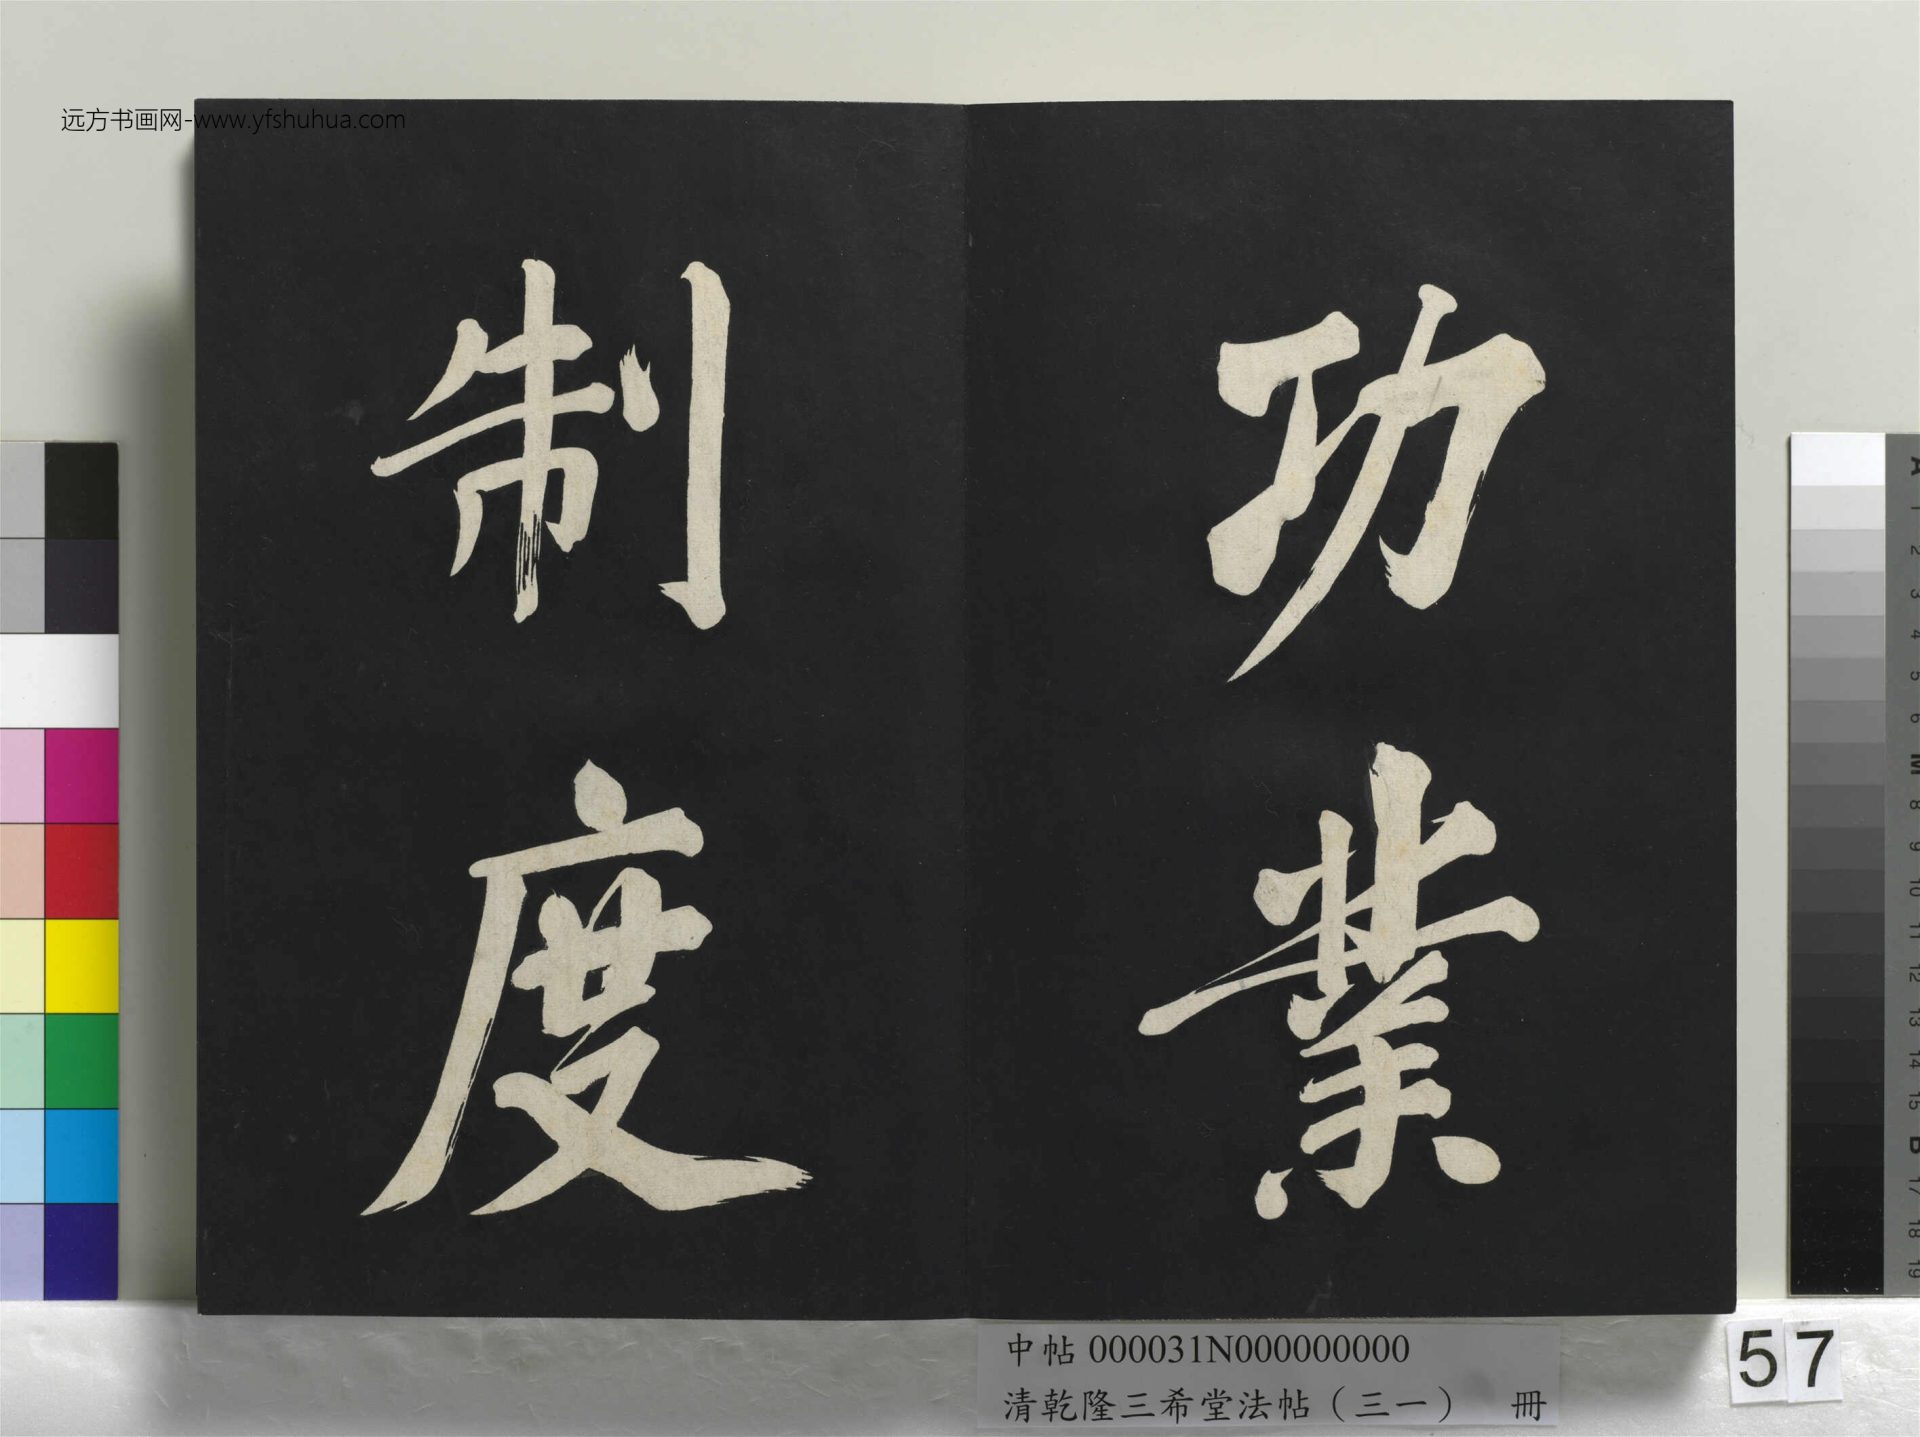 远方书画网-www.yfshuhua.com
功業
制度
中帖 000031N000000000
清乾隆三希堂法帖（三一） 冊
57
A
1
2
3
4
5
6
M
8
9
10
11
12
13
14
15
B
17
18
19